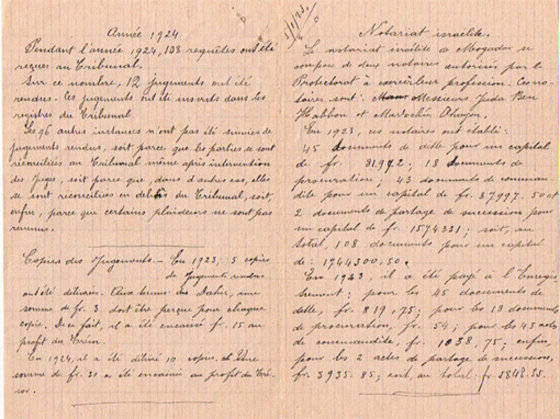 Année 1924.
Pendant l'année 1924, 108 requêtes ont été
reçues au Tribunal.
Sur ce nombre, 12 jugements ont été
rendus. Ces jugements ont été inscrits dans les
registres du Tribunal.
Les 96 autres instances n'ont pas été suivies de
jugements rendus, soit parce que les parties se sont
réconciliées au Tribunal même après intervention
des Juges, soit parce que, dans d'autres cas, elles
se sont réconciliées en dehors du Tribunal, soit,
enfin, parce que certains plaideurs ne sont pas
revenus.
Copies des Jugements. - En 1923, 5 copies
de Jugements rendus
ont été délivrées. Aux termes du Dahir, une
somme de fr. 3 doit être perçue pour chaque
copie. De ce fait, il a été encaissé fr. 15 au
profit du Trésor.
En 1924, il a été délivré 10 copies, et
somme de fr. 30 a été encaissée au profit du Tré-
sor.
Notariat israélite.
Le notariat israélite de Mogador se
compose de deux notaires autorisés par le
Protectorat à exercer leur profession. Ces no-
taires sont: Messieurs Juda Ben
Habbon et Mardochée
En 1923, ces notaires ont établi:
45 documents de dette pour un capital
de fr. 31972; 18 documents de
procuration; 43 documents de comman-
dite pour un capital de fr. 87997.50 et
2 documents de partage de succession pour
un capital de fr. 1574331; soit, au
total, 108 documents pour un capital
de: 1744300,50.
En 1923, il a été payé à l'Enregis-
trement: pour les 45 documents de
dette, fr. 819,75; pour les 18 documents
de procuration, fr. 54; pour les 43 actes
de commandite, fr. 1038.75; enfin,
pour les 2 actes de partage de succession,
fr. 3935.85; soit, au total, fr. 5848.35.